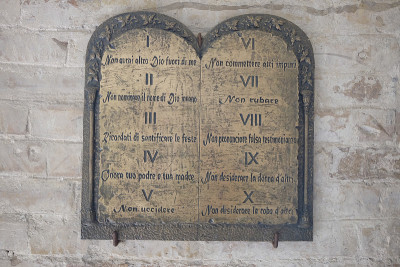 I
Non avrai altro Dio fuori di me
II
Non nominare il nome di Dio invano
III
Ricordati di santificare le feste
IV
Onora tuo padre e tua madre
V
Non uccidere
VI
Non commettere atti impuri
VII
Non rubare
VIII
Non pronunciare falsa testimonianza
IX
Non desiderar la donna d'altri
X
Non desiderar la roba d'altri